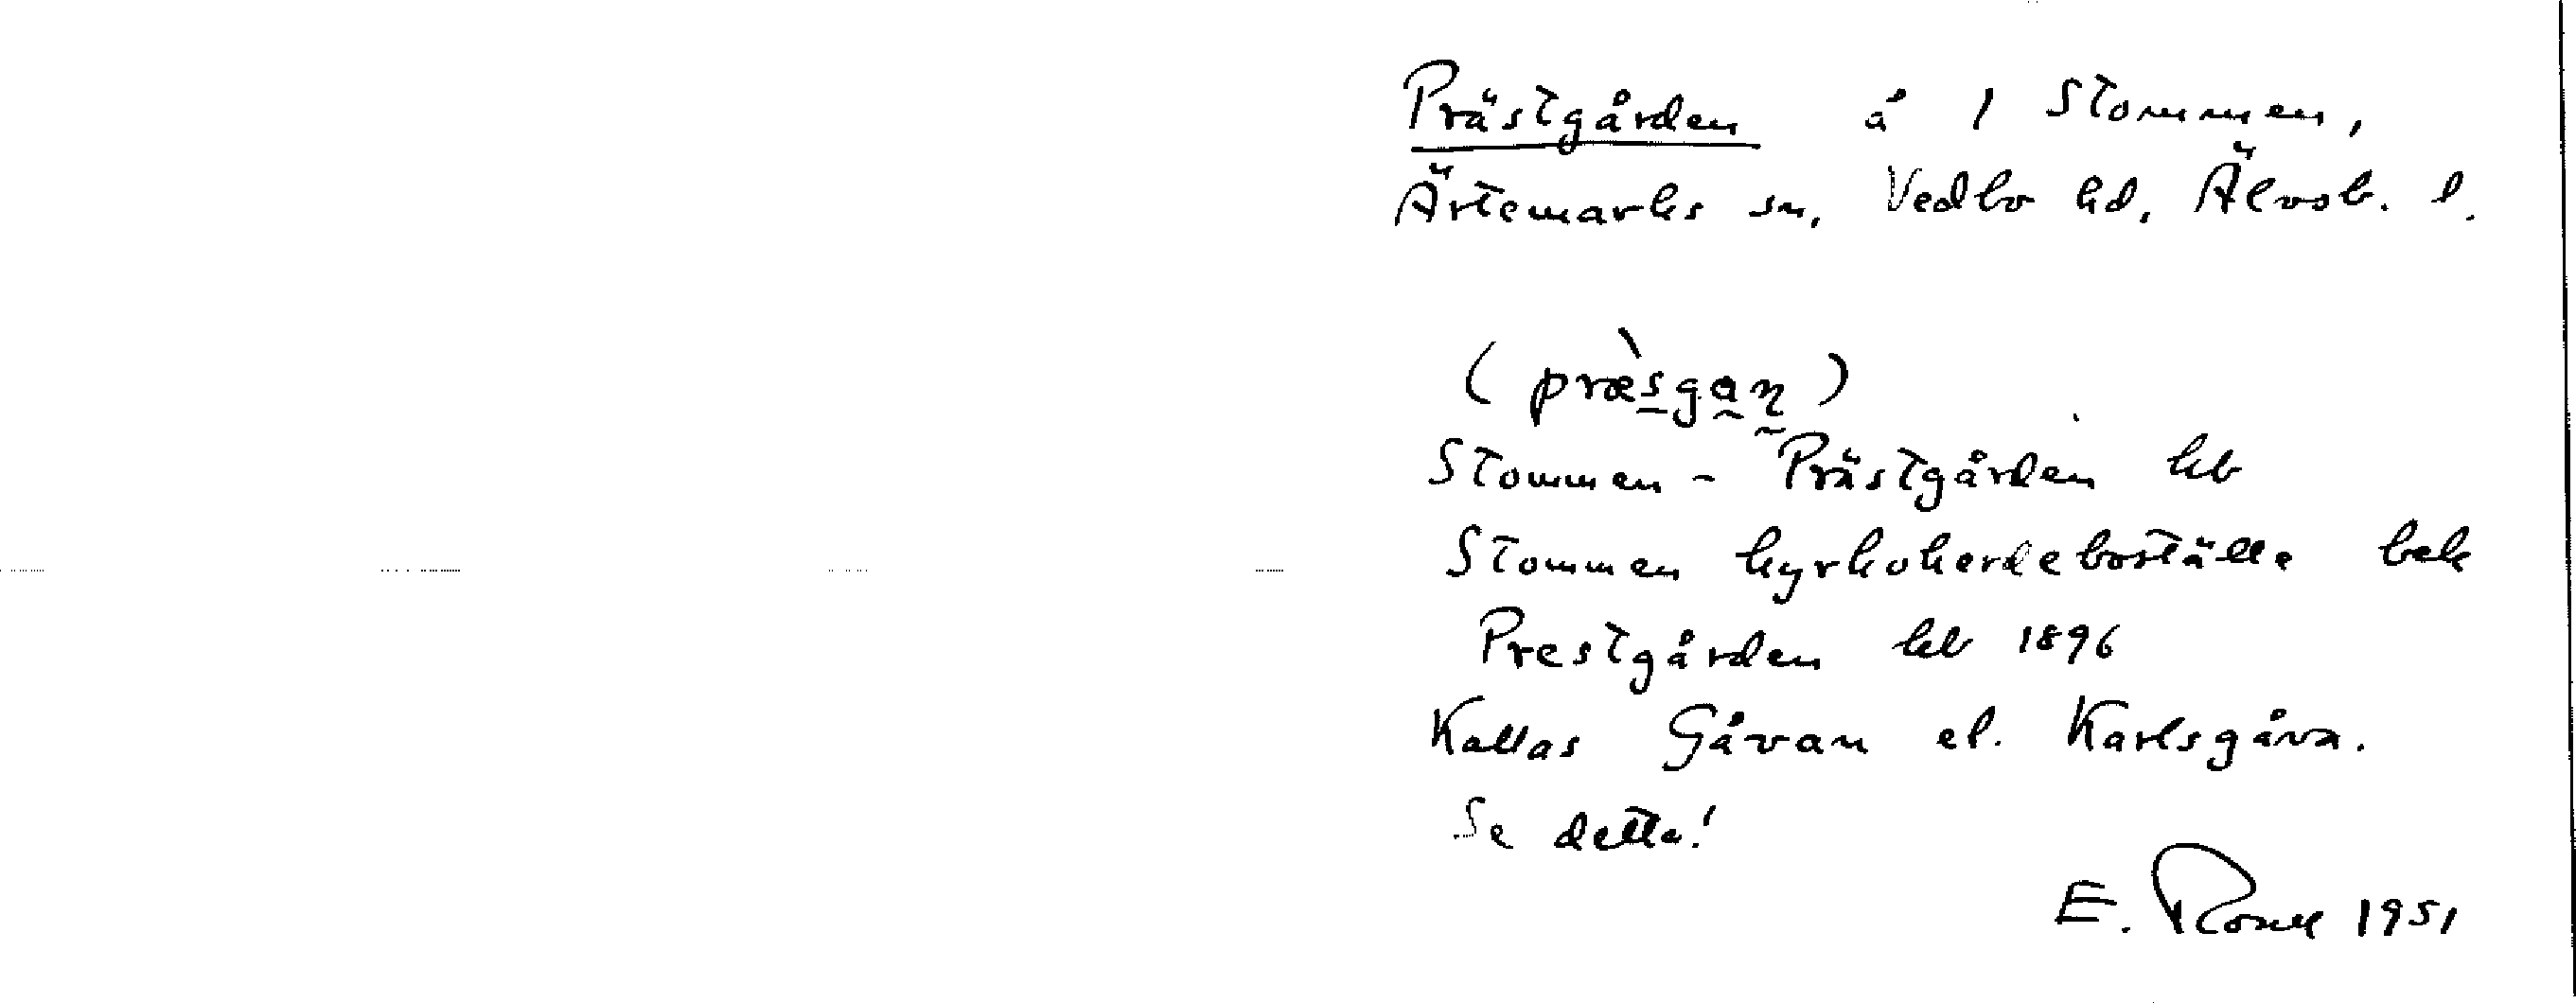 Prästgården å 1 Stommen,
Ärtemarks sn, Vedbo hd, Älvsb. l.
(præ̀sgan)
Stommen - Prästgården kb
Stommen kyrkoherdeboställe bek
Prestgården kb 1896
Kallas Gåvan el. Karlsgåva.
Se detta!
E. 1951